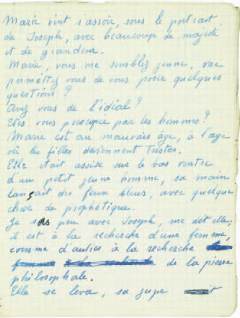 Marie vint s'assoir, sous le portrait
de Joseph, avec beaucoup de majesté
et de grandeur.
Marie, vous me semblez jeune, vous
permettez vous de vous poser quelques
questions ?
Avez vous de l'idéal ?
Etes vous préoccupée par les hommes ?
Marie est au mauvais âge, à l'age
où les filles deviennent tristes.
Elle était assise sur le bas ventre
d'un petit jeune homme, sa main
lançait des feux bleus, avec quelque
chose de prophétique.
Je peu avec Joseph, me dit elle,
il est à la recherche d'une femme,
comme d'autres à la recherche
de la pierre
philosophale.
Elle se leva, sa jupe